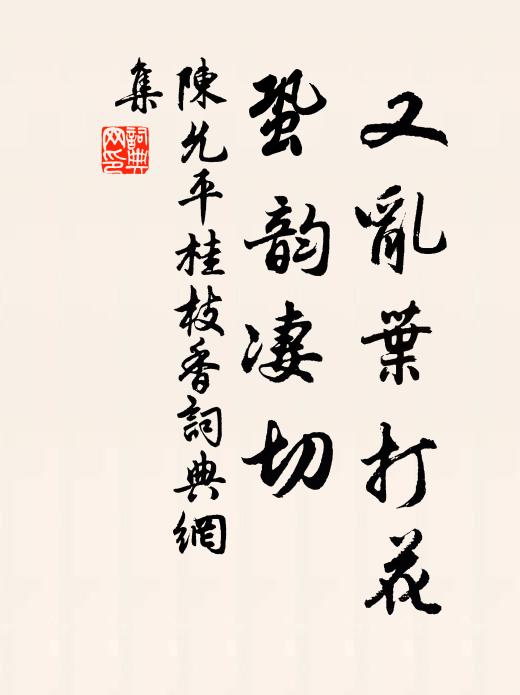 又亂葉打花
蛩韵凄切
陳允平桂枝香詞典網
集
詞典
网印